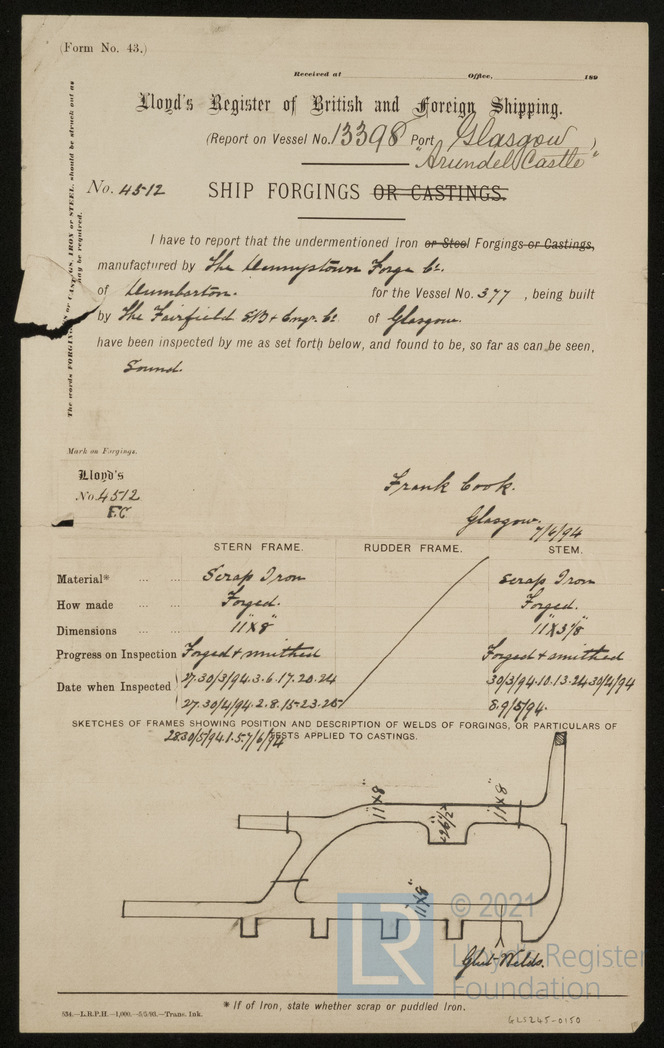 (Form No. 43.)
Received at Office, 189
Lloyd's Register of British and Foreign Shipping.
(Report on Vessel No. 13398 Port Glasgow )
"Arundel Castle"
No. 4512 SHIP FORGINGS OR CASTINGS.
The words FORGINGS or CASTINGS, IRON or STEEL, should be struck out as
may be required.
I have to report that the undermentioned Iron or Steel Forgings or Castings,
manufactured by The Dennystown Forge Co.
of Dumbarton. for the Vessel No. 377 , being built
by The Fairfield SB & Engr. Co of Glasgow.
have been inspected by me as set forth below, and found to be, so far as can be seen,
Sound.
Mark on Forgings.
Lloyd's
No. 4512
F.C.
Frank Cook.
Glasgow.
7/6/94
STERN FRAME. RUDDER FRAME. STEM.
Material* ... ... Scrap Iron Scrap Iron
How made ... ... Forged. Forged.
Dimensions ... ... 11"x8" 11"x3⅛"
Progress on Inspection Forged & smithed Forged & smithed
Date when Inspected 27.30/3/94.3.6.17.20.24 30/3/94.10.13.24.30/4/94
27.30/4/94.2.8.15.23.25 8.9/5/94.
SKETCHES OF FRAMES SHOWING POSITION AND DESCRIPTION OF WELDS OF FORGINGS, OR PARTICULARS OF
28.30/5/94.1.5.7/6/94 TESTS APPLIED TO CASTINGS.
11"x8"
11"x8"
11"x8"
Glut-Welds.
LR © 2021
Lloyd's Register
Foundation
* If of Iron, state whether scrap or puddled Iron.
534.—L.R.P.H.—1,000.—5/5/93.—Trans. Ink.
GLS245-0150